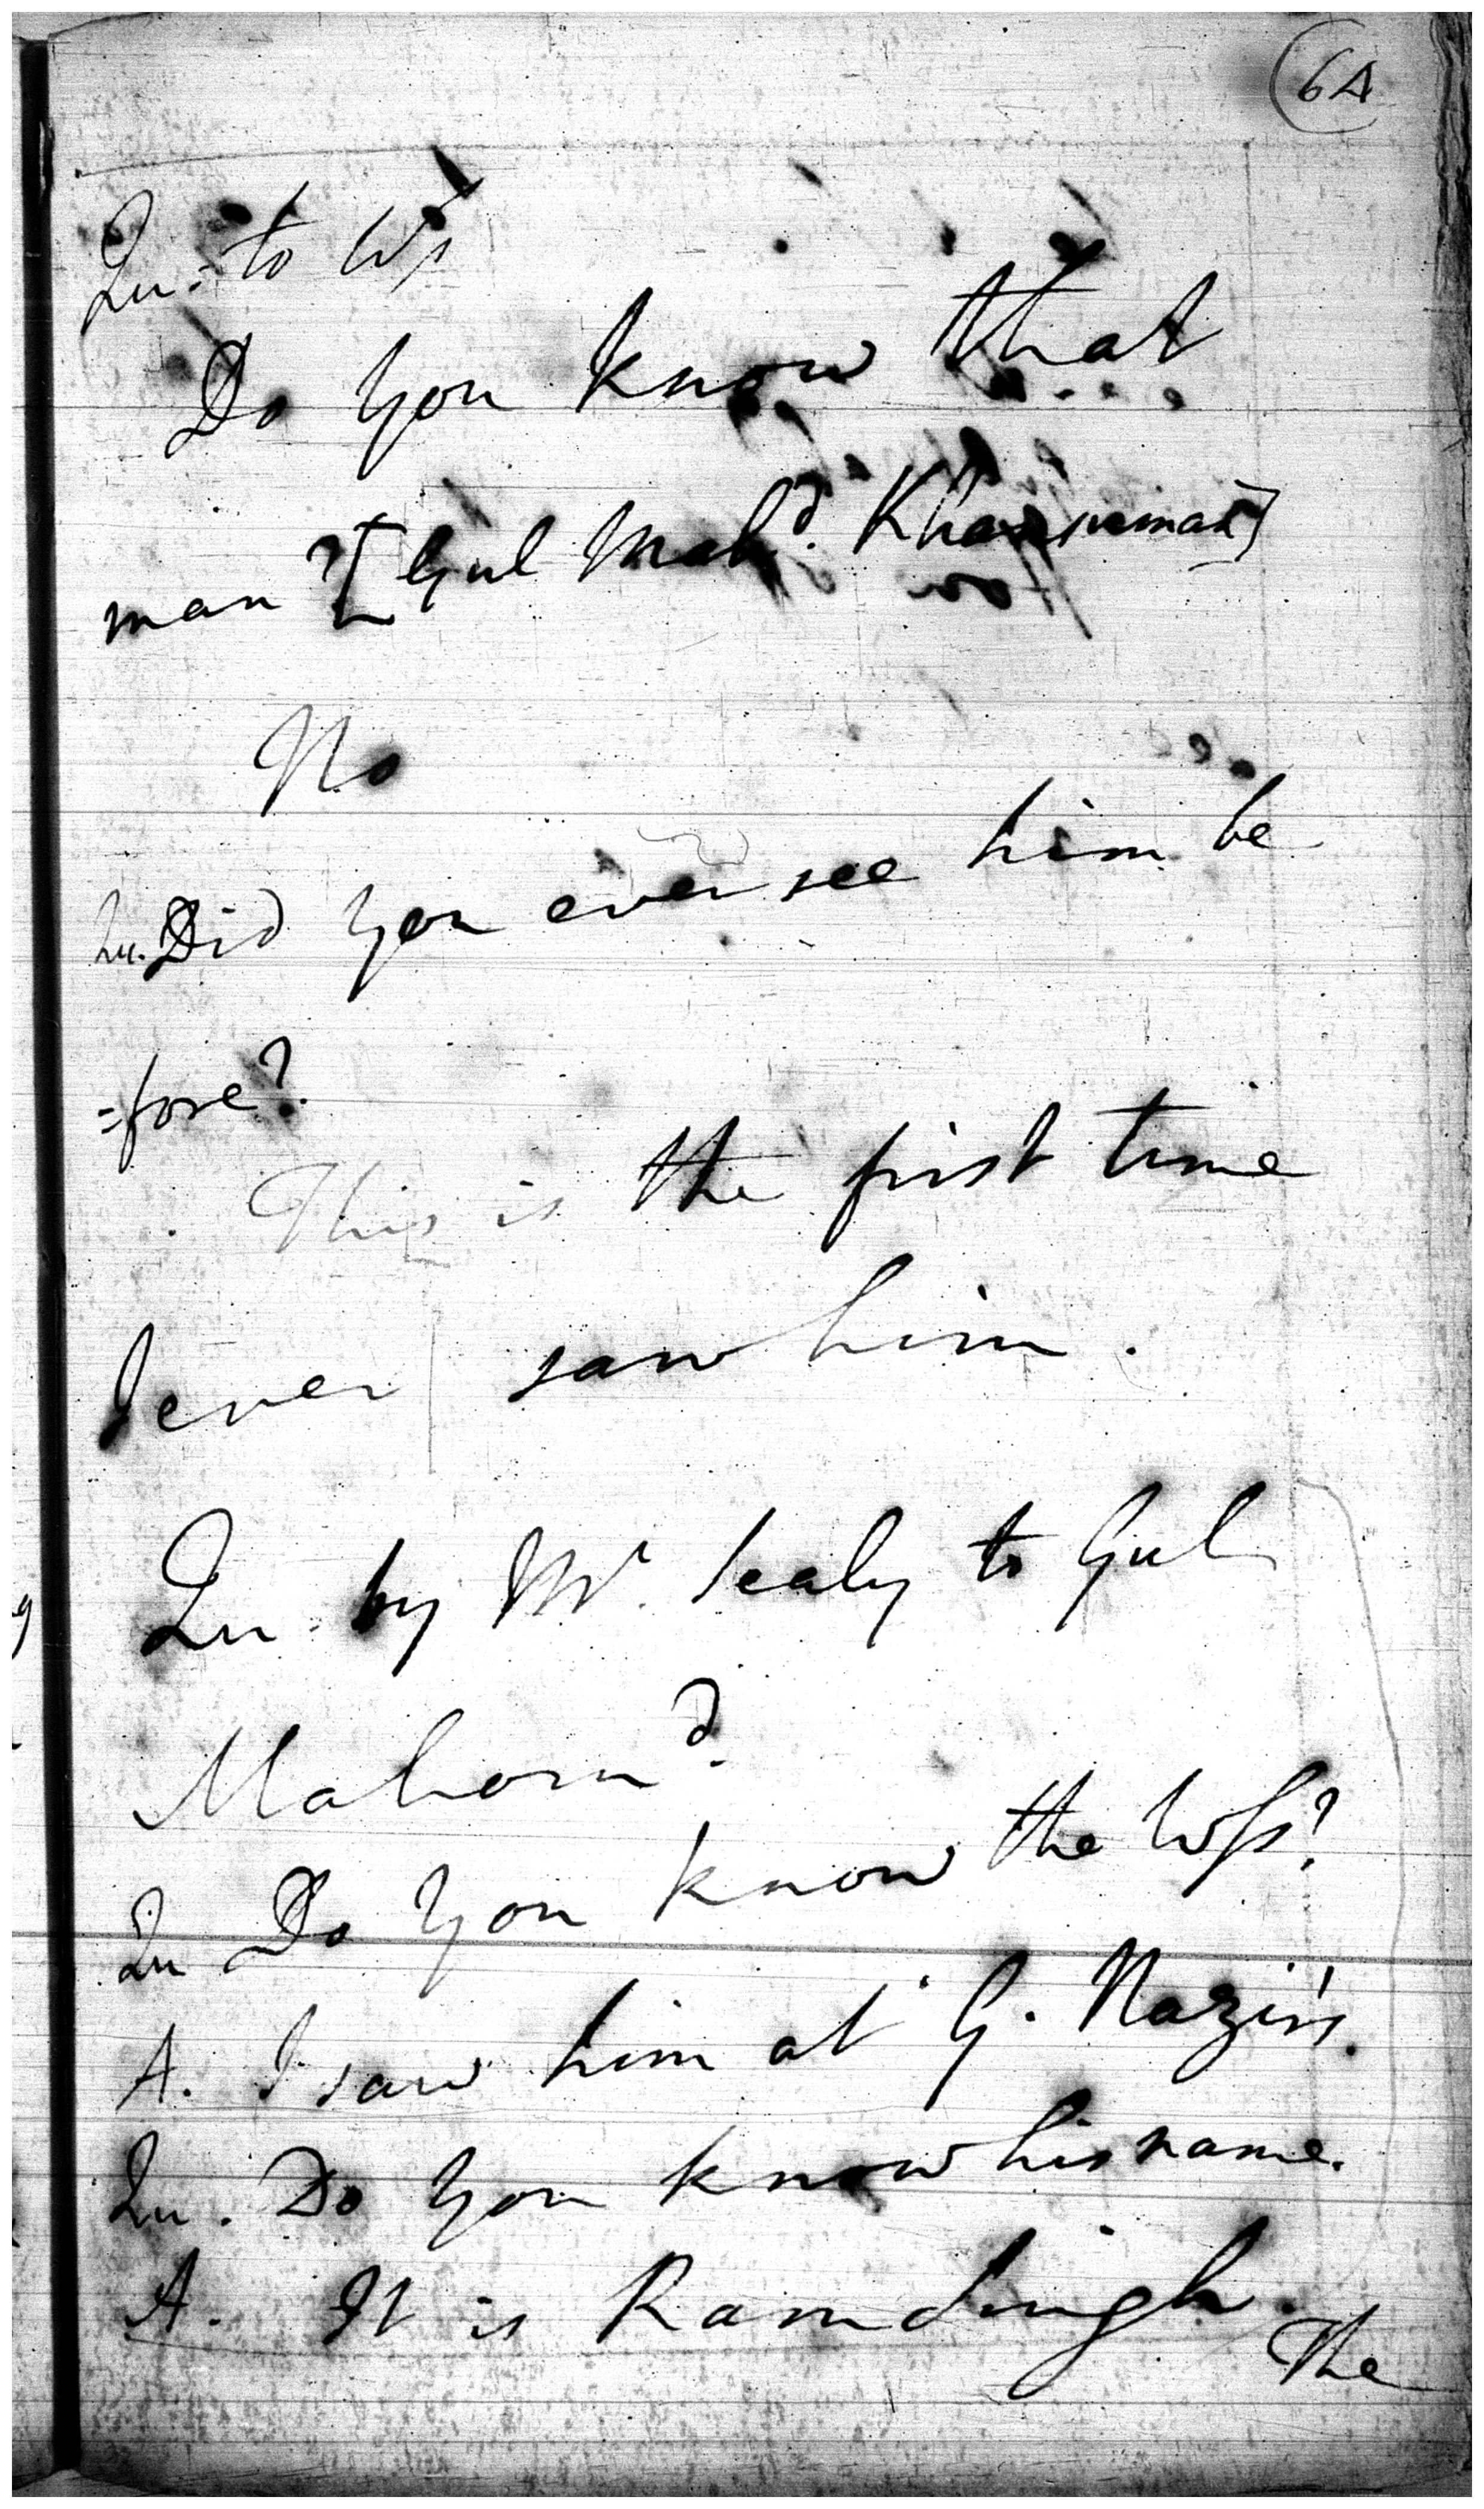 64
Qu. to Ws
Do you know that
man? [Gul Mahd. Khansuman]
No
Qu. Did you ever see him be
=fore?
This is the first time
I ever saw him.
Qu. by Mr. Sealy to Gul
Mahomd.
Qu Do you know the Wss?
A. I saw him at G. Nazir's.
Qu. Do you know his name.
A. It is Ramsingh.
The